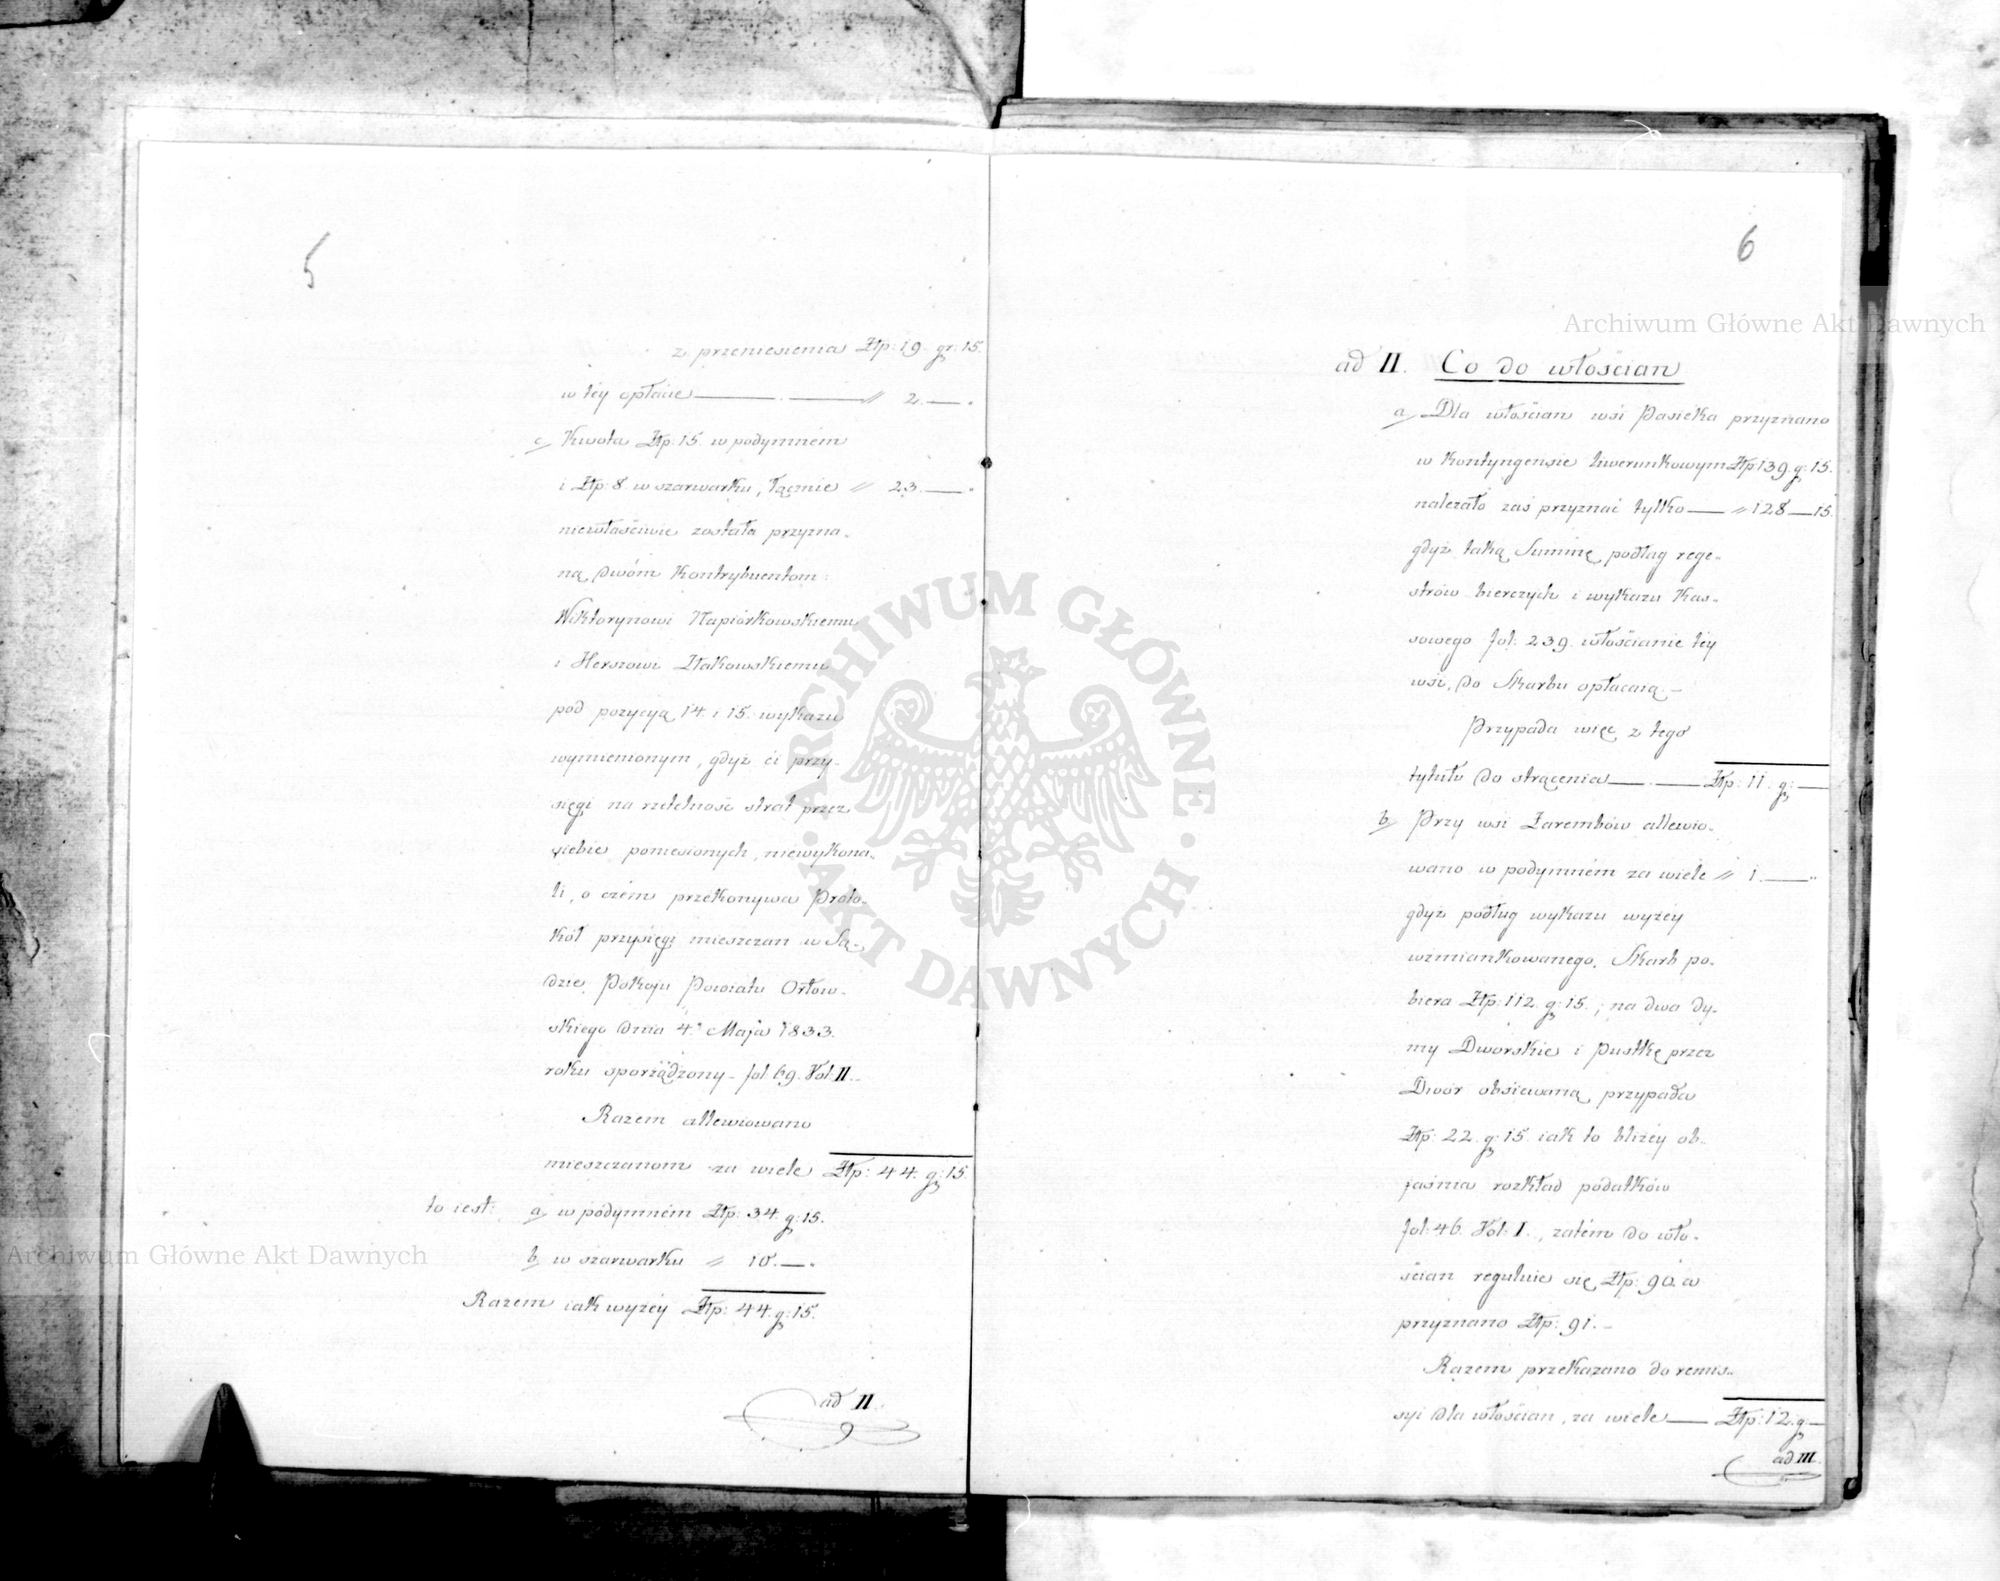 5
z przeniesienia Złp: 19 gr: 15.
w téy opłacie — . — " 2. — .
c, Kwota Złp: 15. w podymném
i Złp: 8. w szarwarku, łącznie " 23. — .
niewłaściwie została przyzna-
ną dwóm Kontrybuentom:
Wiktorynowi Napiórkowskiemu
i Herszowi Makowskiemu
pod pozycyą 14. i 15. wykazu
wymienionym, gdyż ci przy-
sięgi na rzetelność strat przez
siebie poniesionych, niewykona-
li, o czém przekonywa Proto-
kół przysięgi mieszczan w Są-
dzie Pokoju Powiatu Orłow-
skiego dnia 4. Maja 1833.
roku sporządzony - fol. 69. Vol. II.
Razem allewiowano
mieszczanom za wiele Złp: 44. g: 15.
to iest: a, w podymném Złp: 34. g: 15.
b, w szarwarku " 10. — .
Razem iak wyżéy Złp: 44. g: 15.
ad II.
6
ad II. Co do włościan
a, Dla włościan wsi Pasieka przyznano
w kontyngensie liwerunkowym Złp 139. g: 15.
należało zaś przyznać tylko — " 128 — 15.
gdyż taką Summę podług rege-
strów bierczych i wykazu Kas-
sowego fol: 239. włościanie téy
wsi, do Skarbu opłacaią. —
Przypada więc z tego
tytułu do strącenia — . — Złp: 11. g: —
b, Przy wsi Zarembów allewio-
wano w podymném za wiele " 1. — "
gdyż podług wykazu wyżéy
wzmiankowanego, Skarb po-
biera Złp: 112. g: 15.; na dwa dy-
my Dworskie i pustkę przez
Dwór obsiewaną przypada
Złp: 22. g: 15. iak to bliżéy ob-
jaśnia rozkład podatków
fol: 46. Vol: I., zatém do wło-
ścian reguluie się Złp: 90. a
przyznano Złp: 91. —
Razem przekazano do remis-
syi dla włościan, za wiele — Złp: 12. g: —
ad III.
Archiwum Główne Akt Dawnych
Archiwum Główne Akt Dawnych
ARCHIWUM GŁÓWNE · AKT DAWNYCH ·